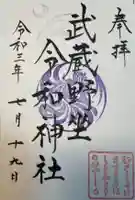 奉拝
武蔵野坐
令和神社
令和三年
七月十九日